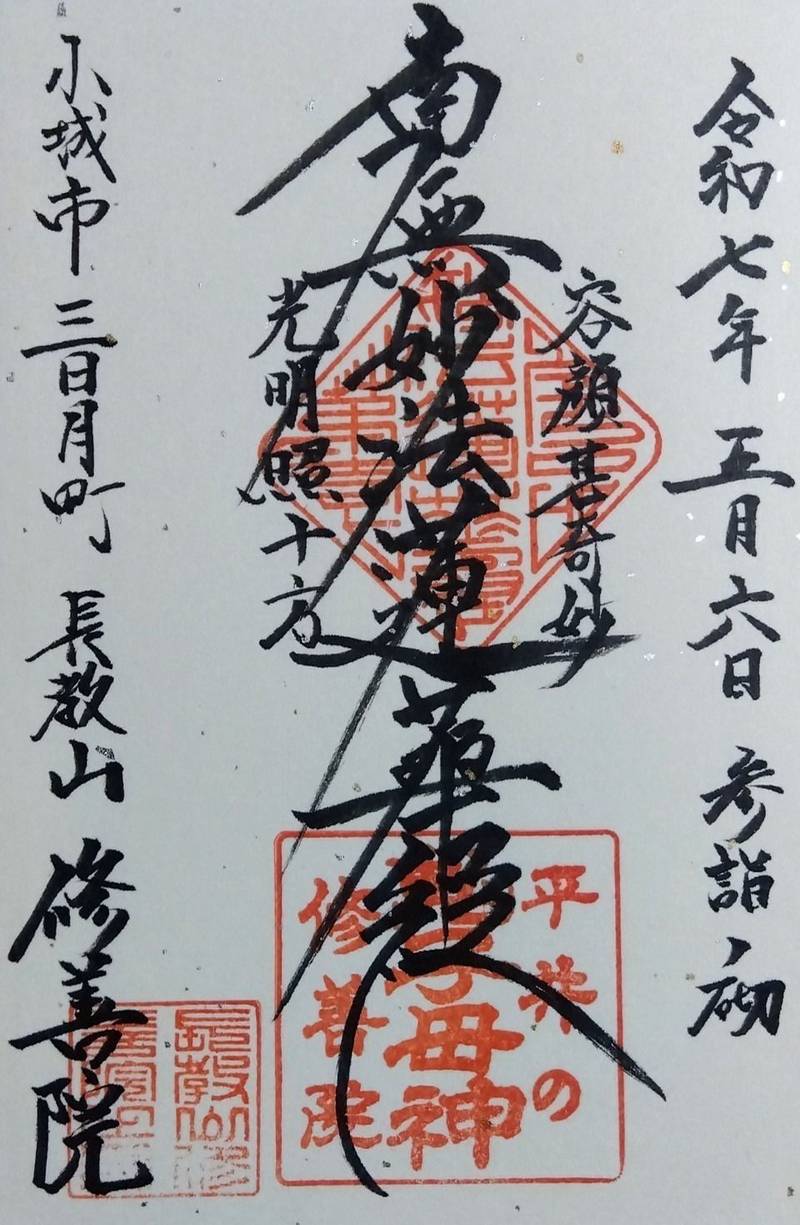 令和七年 正月六日 参詣ノ砌
容顔甚奇妙
南無妙法蓮華経
光明照十方
小城市 三日月町 長教山 修善院
平井の
子母神
修善院
長教山修